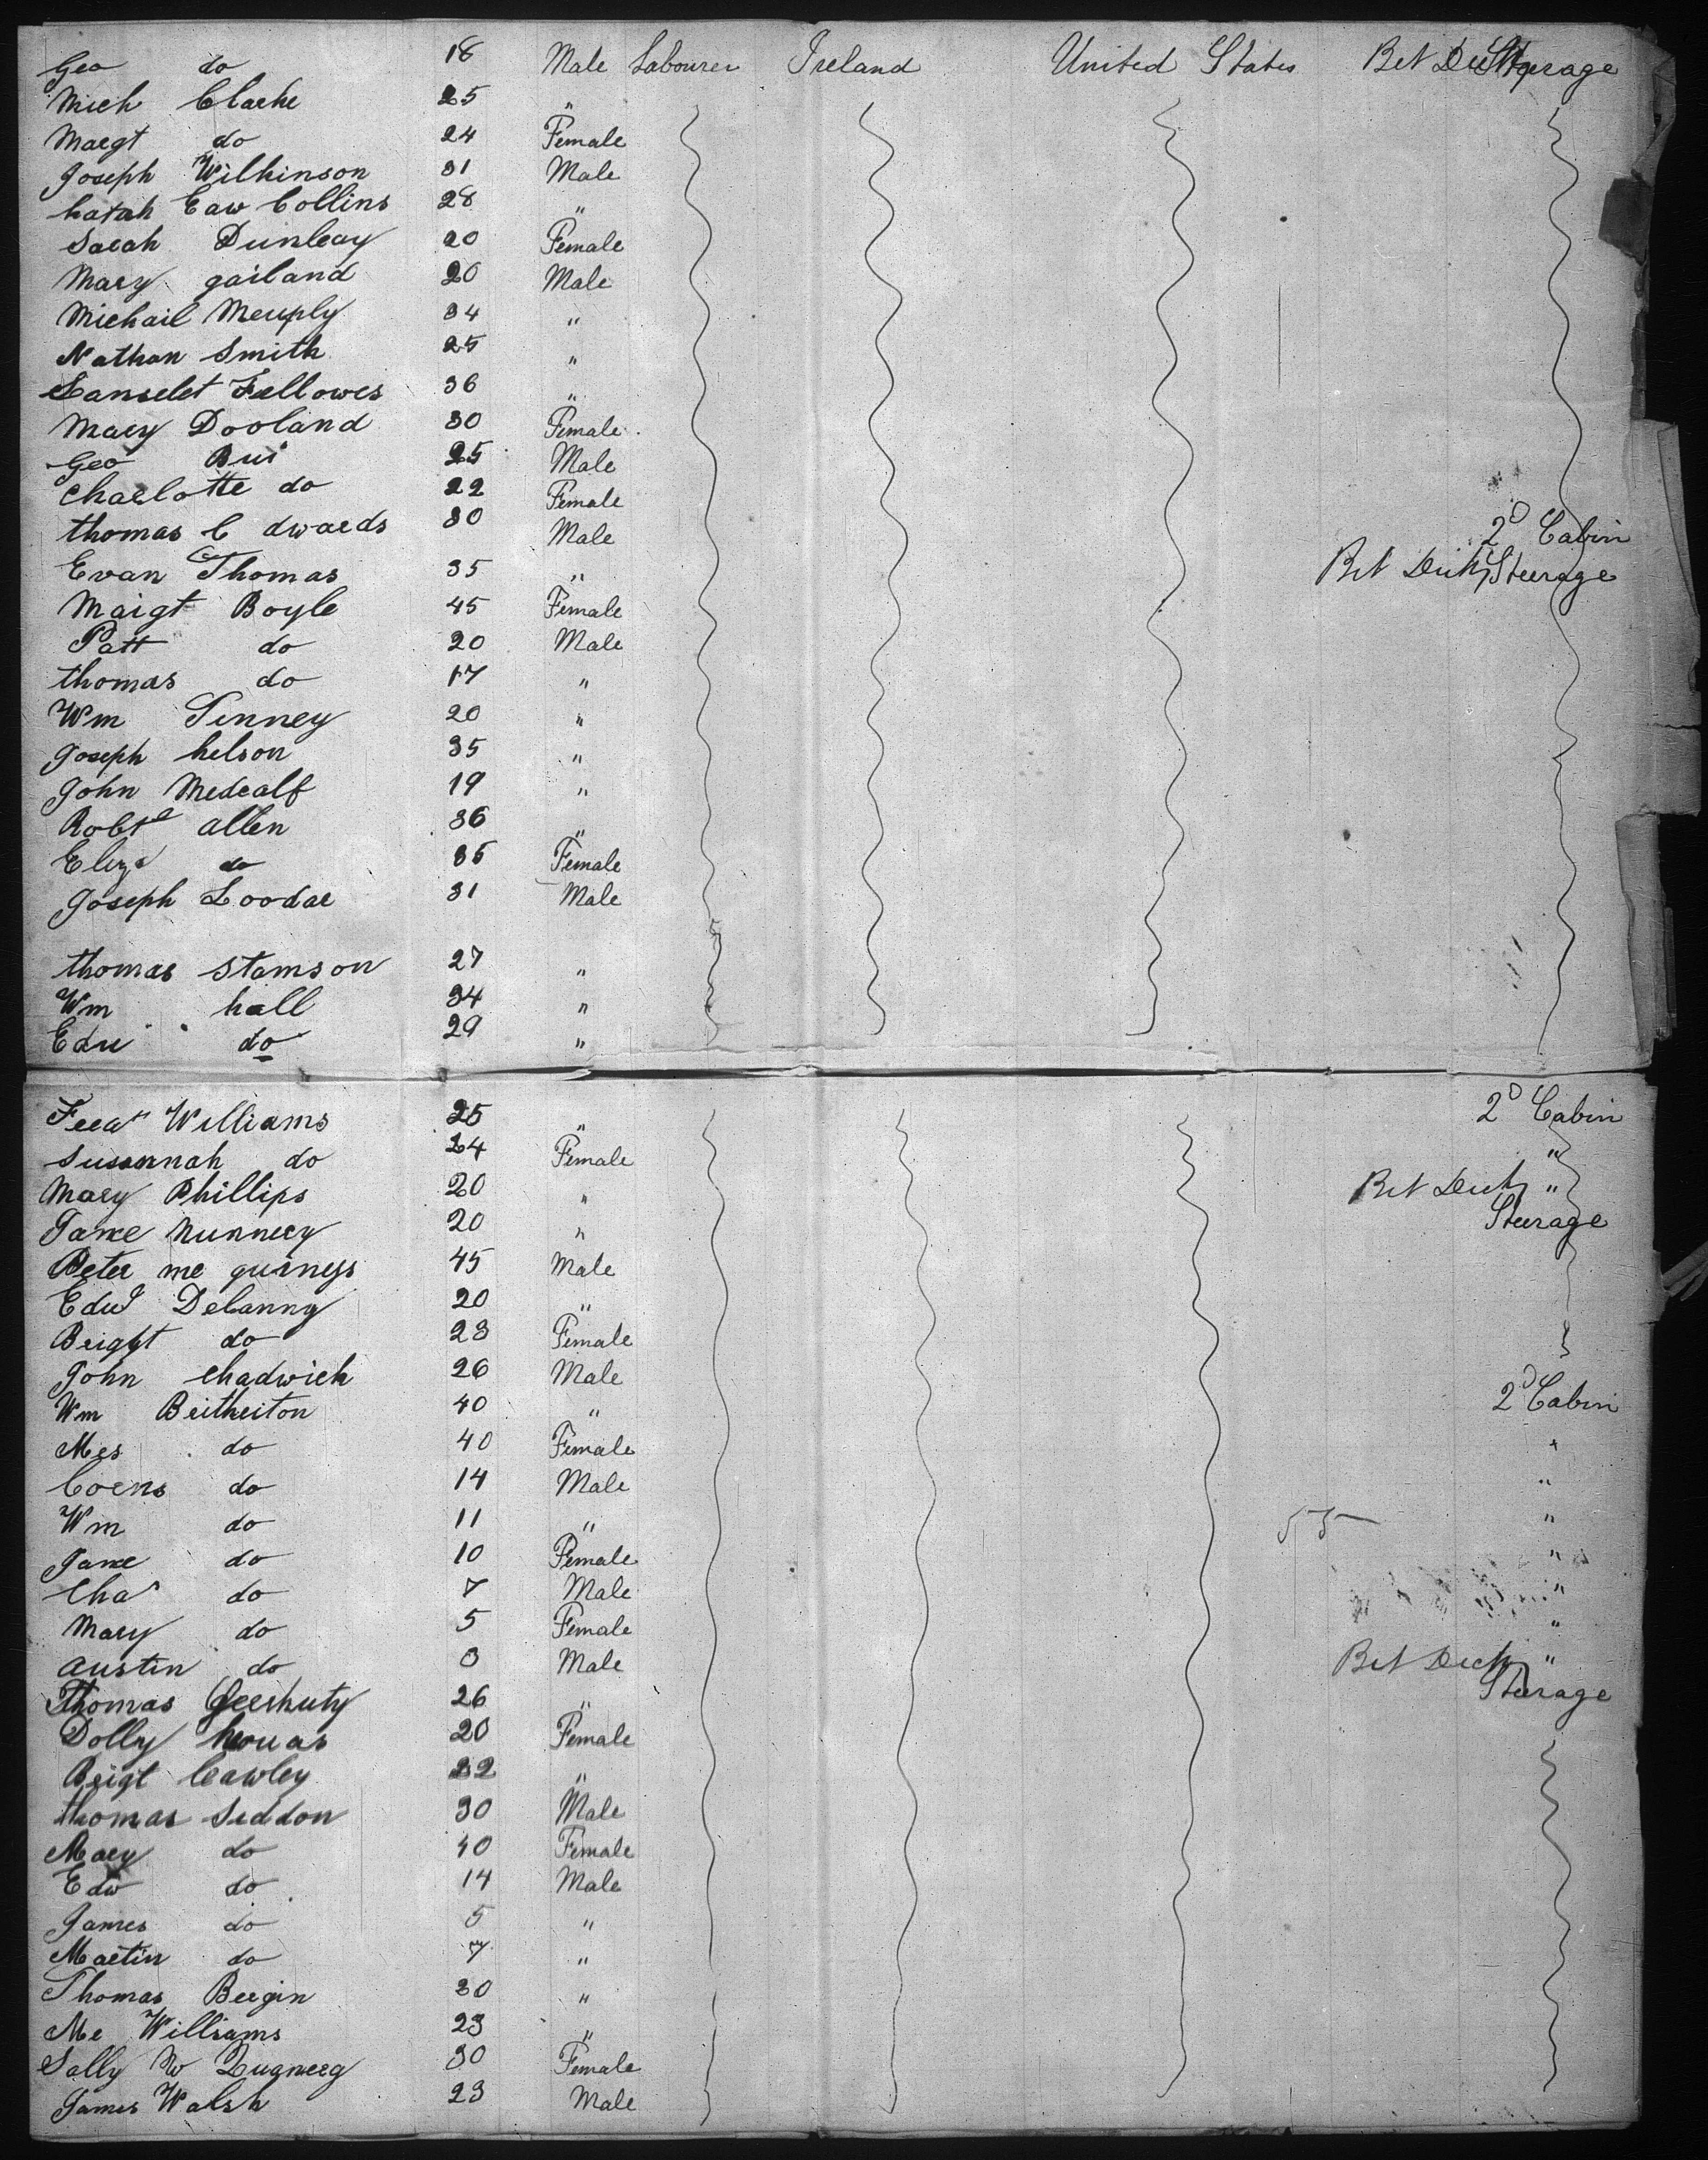 Geo do 18 Male Labourer Ireland United States Bet Decks Steerage
Mich Clarke 25 "
Margt do 24 Female
Joseph Wilkinson 31 Male
Eaw Collins 28 "
Sarah Dunleay 20 Female
Mary gailand 20 Male
Michail Meuply 34 "
Nathan Smith 25 "
Lanselet Fellowes 36 "
Mary Dooland 30 Female
Geo Bui 25 Male
Charlotte do 22 Female
thomas E dwards 30 Male 2D Cabin
Evan Thomas 35 " Bet Decks Steerage
Maigt Boyle 45 Female
Patt do 20 Male
thomas do 17 "
Wm Tinney 20 "
Joseph helson 35 "
John Medcalf 19 "
Robt allen 36 "
Eliza do 35 Female
Joseph Loodar 31 Male
thomas Stamson 27 "
Wm hall 34 "
Edw do 29 "
Williams 25 " 2D Cabin
Susannah do 24 Female "
Mary Phillips 20 " Bet Decks "
Jane Nunnery 20 " Steerage
Peter mc guineys 45 Male
Edwd Delanny 20 "
Bright do 23 Female
John Chadwick 26 Male
Wm Britherton 40 " 2D Cabin
Mrs do 40 Female "
do 14 Male "
Wm do 11 " 55 "
Jane do 10 Female "
Chas do 7 Male "
Mary do 5 Female "
Austin do 3 Male Bet Decks "
Thomas 26 " Steerage
Dolly 20 Female
Brigt Cawley 22 "
thomas Seddon 30 Male
Mary do 40 Female
Edw do 14 Male
James do 5 "
Martin do 7 "
Thomas Bergin 30 "
Mc Williams 23 "
Sally 30 Female
James Walsh 23 Male